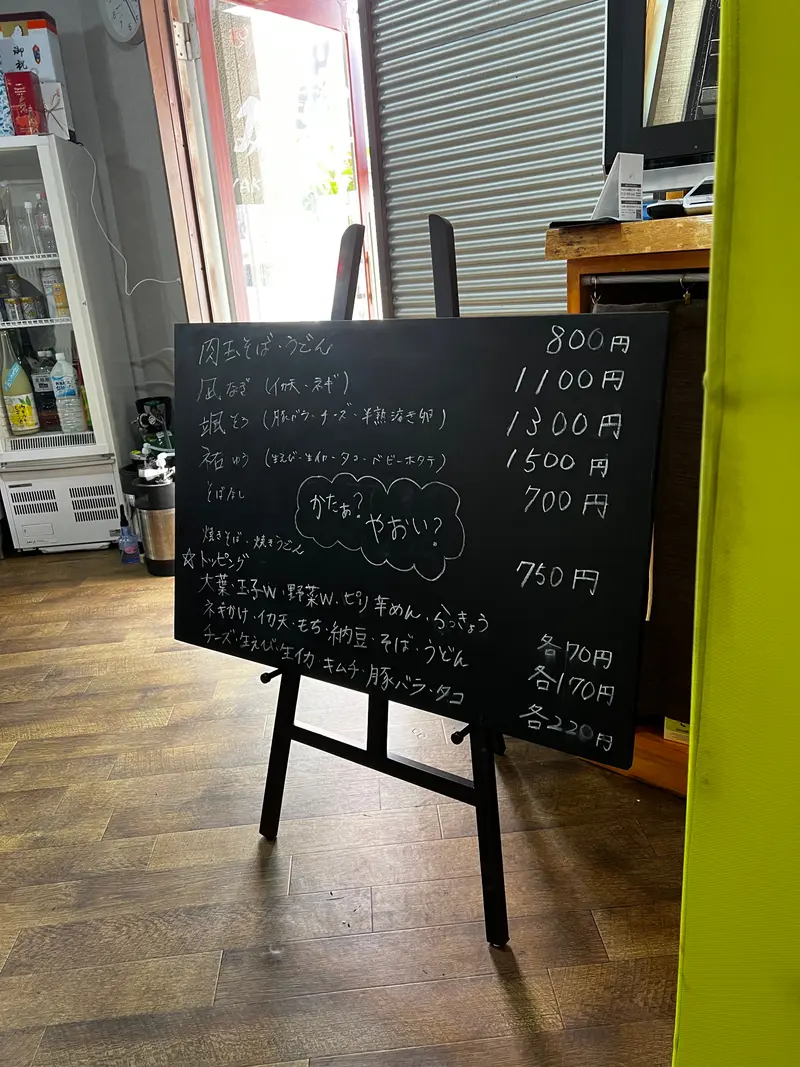 御祝
肉玉そば・うどん 800円
凪 なぎ (イカ天・ネギ) 1100円
颯 そう (豚バラ・チーズ・半熟溶き卵) 1300円
祐 ゆう (生えび・生イカ・タコ・ベビーホタテ) 1500円
そばなし 700円
かたぁ?
やおい?
焼きそば・焼きうどん 750円
☆トッピング
大葉・玉子W・野菜W・ピリ辛めん・らっきょう 各70円
ネギかけ・イカ天・もち・納豆・そば・うどん 各170円
チーズ・生えび・生イカ・キムチ・豚バラ・タコ 各220円